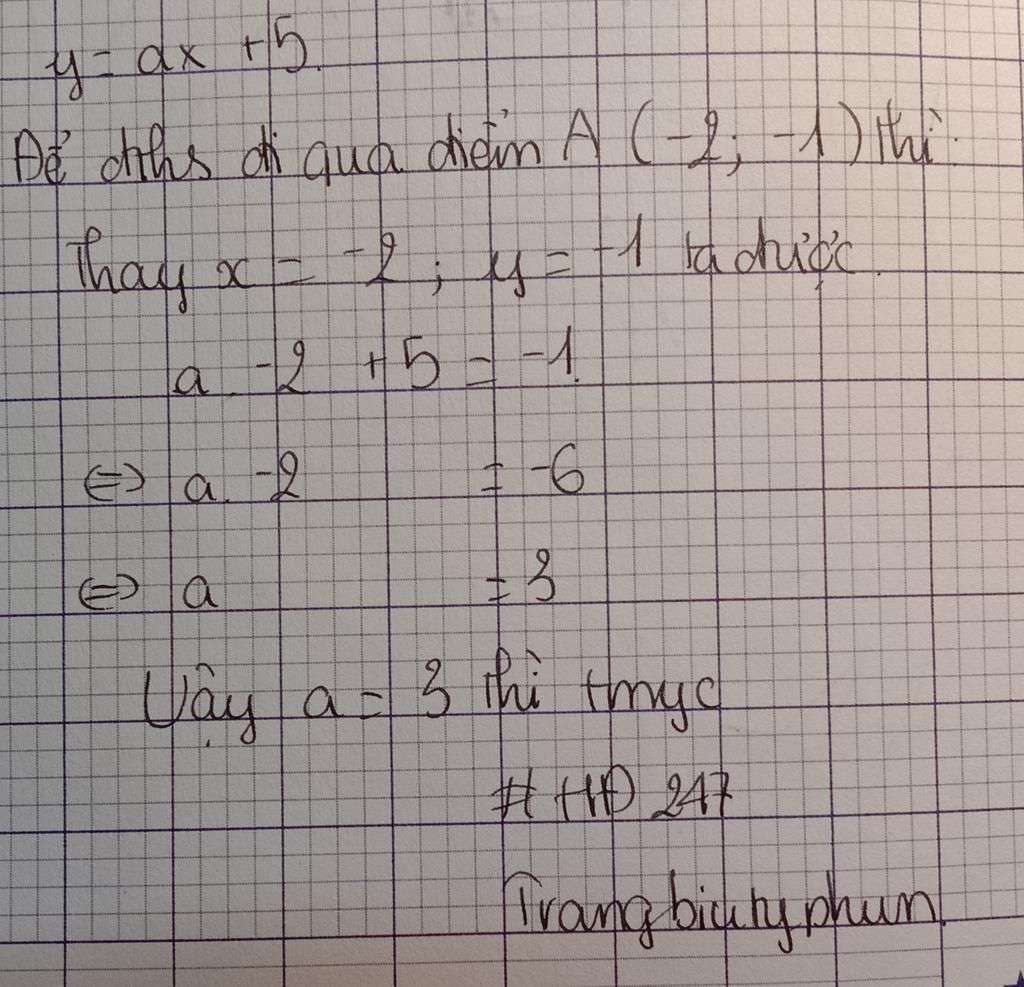 y = ax + 5.
Để đths đi qua điểm A (-2; -1) thì:
Thay x = -2; y = -1 ta được.
a. -2 + 5 = -1.
⇔ a. -2 = -6
⇔ a = 3
Vậy a = 3 thì tmyc
# HĐ 247
Trangbiutyphun